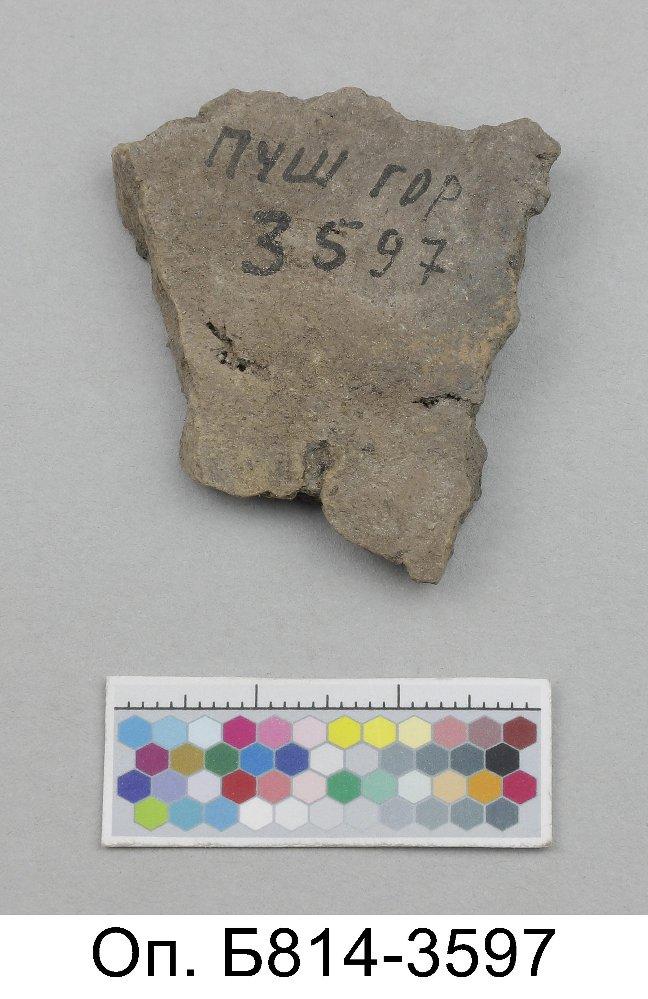 ПУШ ГОР
3597
Оп. Б814-3597